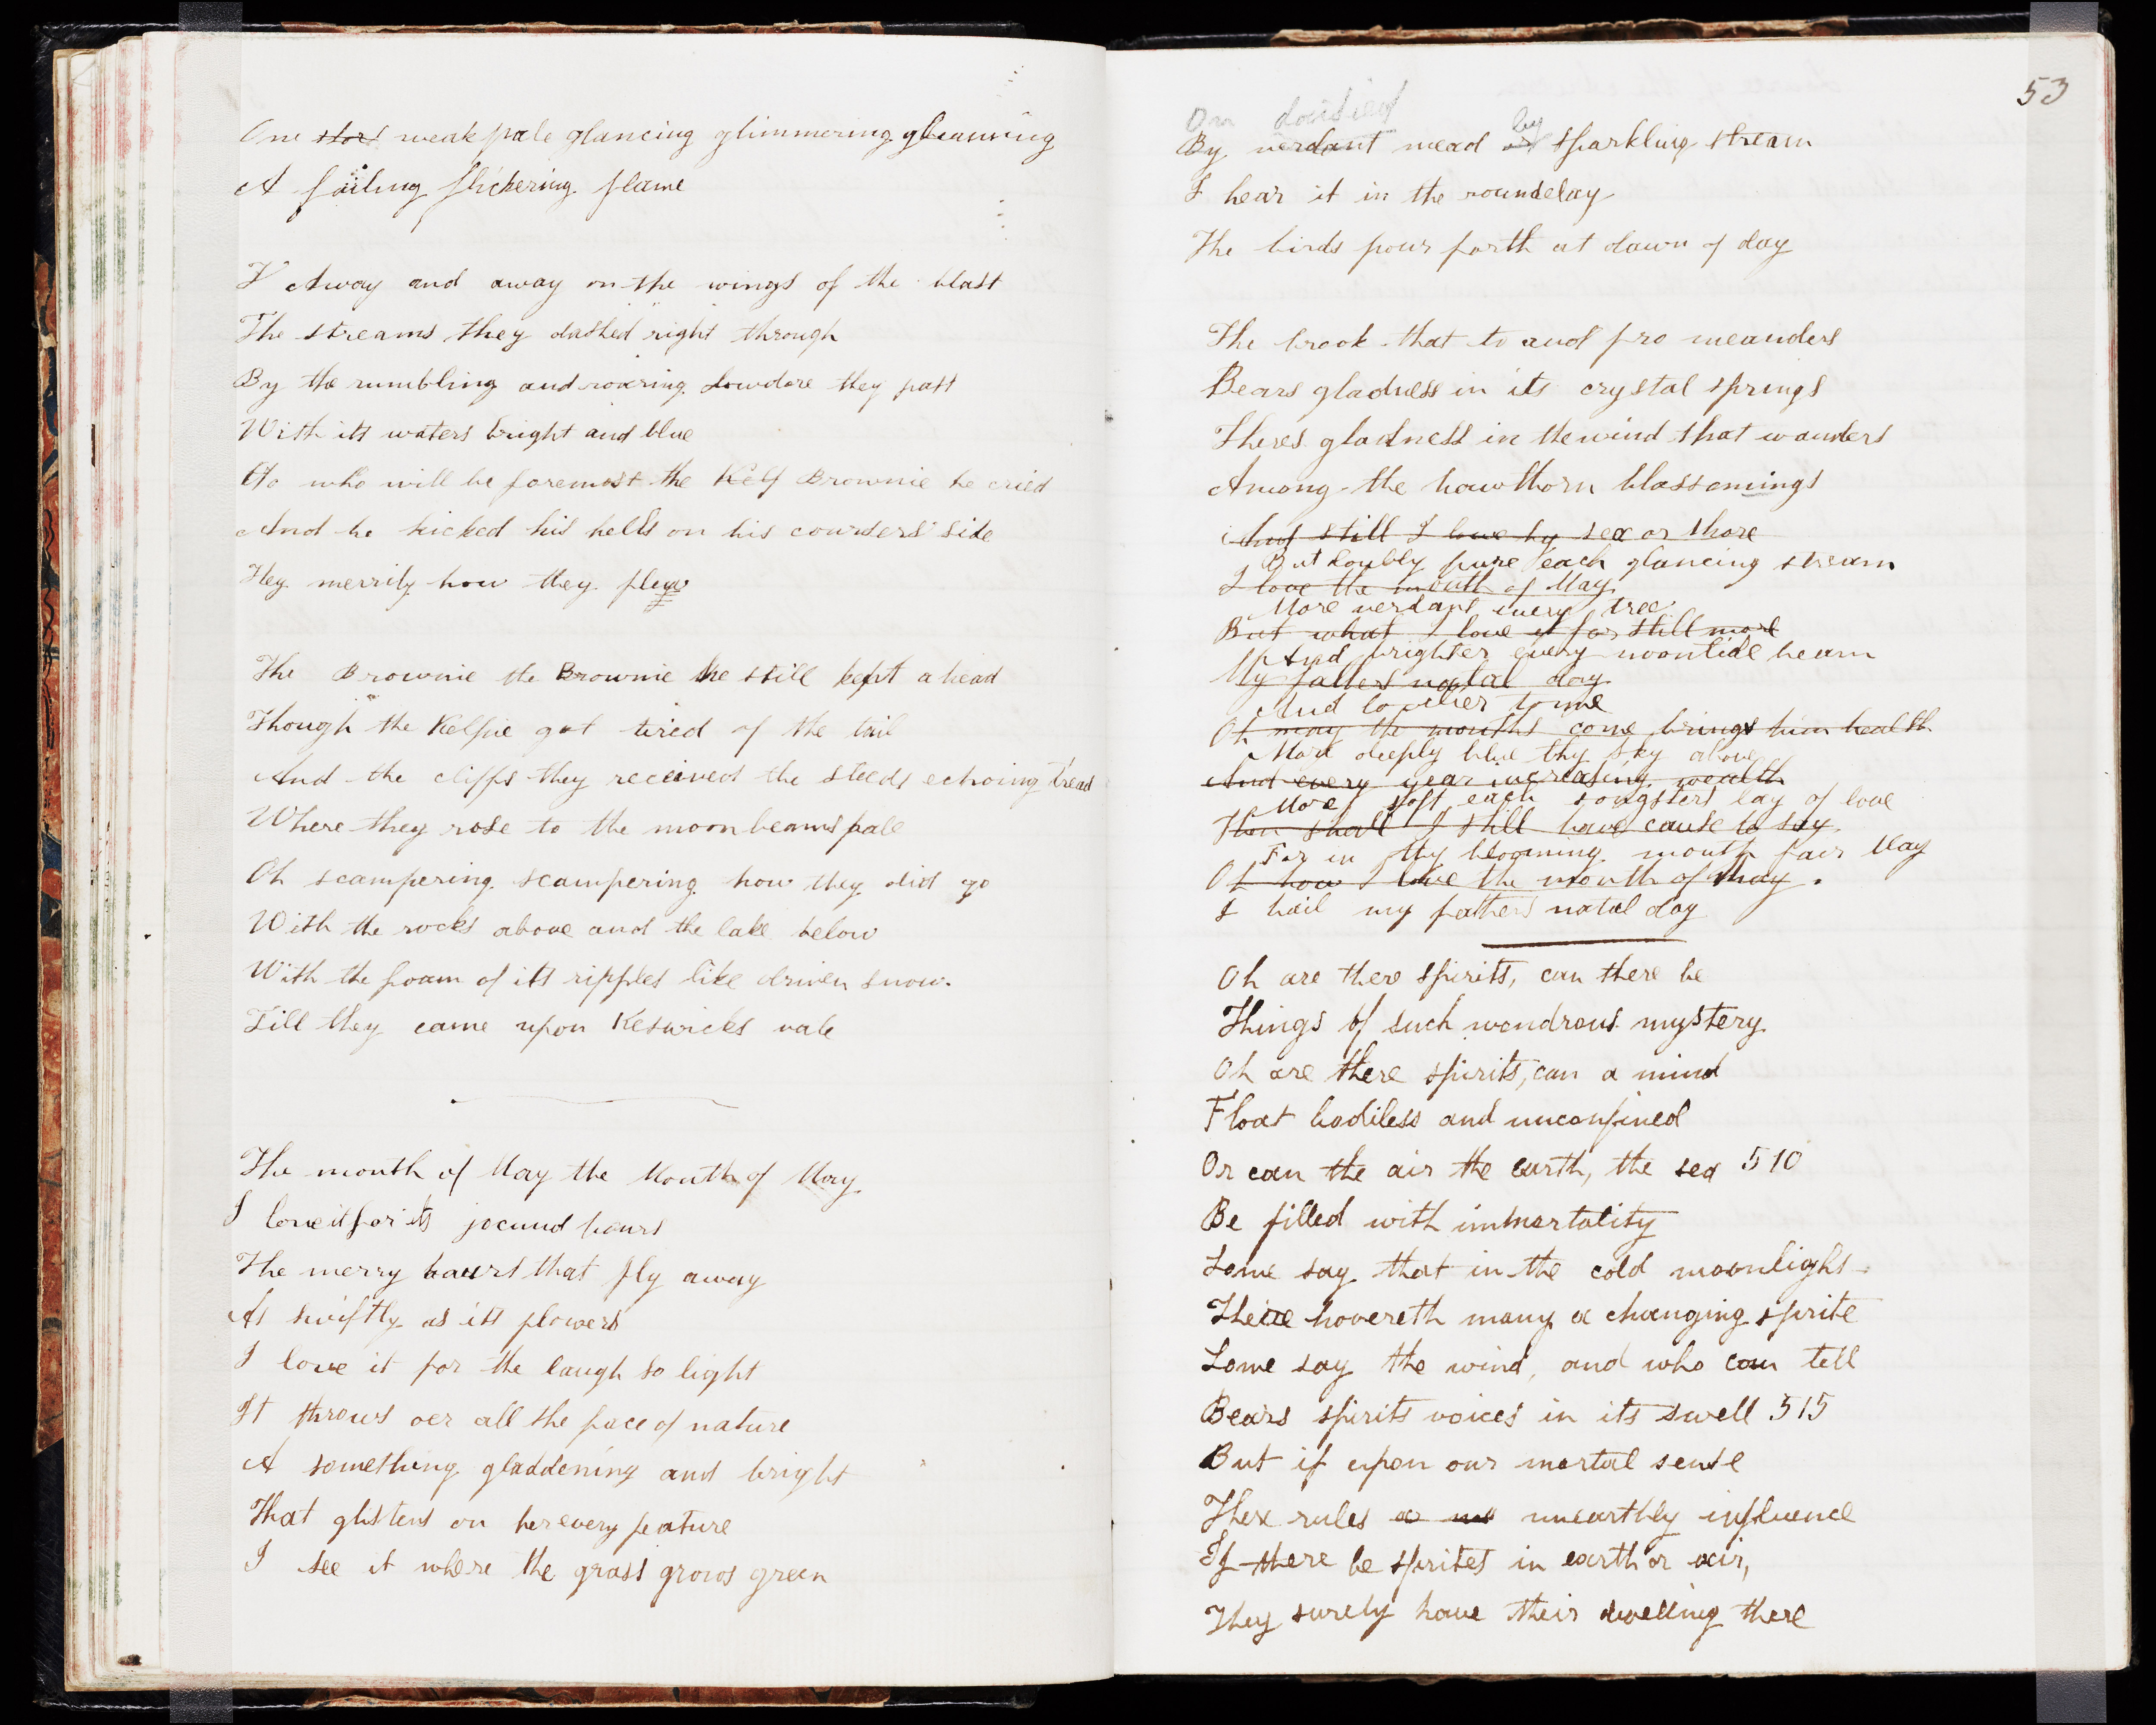 One star weak pale glancing glimmering gleaming
A failing flickering flame
Away and away on the wings of the blast
The streams they dashed right through
By the rumbling and roaring Lowdore they past
With its waters bright and blue
Ho who will be foremost the Kelf Brownie he cried
And he kicked his hells on his coursers side
Hey merrily how they flew
The Brownie the Brownie he still kept ahead
Though the Kelpie got tired of the tail
And the cliffs they received the steeds echoing tread
Where they rose to the moonbeams pale
Oh scampering scampering how they did go
With the rocks above and the lake below
With the foam of its ripples like driven snow.
Till they came upon Keswicks vale
The month of May the Month of May
I love it for its jocund hours
The merry hours that fly away
As swiftly as its flowers
I love it for the laugh so light
It throws oer all the face of nature
A something gladdening and bright
That glistens on her every feature
I see it where the grass grows green
53
On daisied
by
By verdant mead or sparkling stream
I hear it in the roundelay
The birds pour forth at dawn of day
The brook that to and fro meanders
Bears gladness in its crystal springs
Theres gladness in the wind that wanders
Among the hawthorn blossomings
And still I love by sea or shore
But doubly pure each glancing stream
I love the month of May
More verdant every tree
But what I love it for still more
And brighter every noontide beam
My fathers natal day
And lovelier to me
Oh may the months come brings him health
More deeply blue thy sky above
And every year increasing wealth
More soft each songsters lay of love
Then shall I still have cause to say
For in thy blooming month fair May
Oh how I love the month of May.
I hail my fathers natal day
Oh are there spirits, can there be
Things of such wondrous mystery
Oh are there spirits, can a mind
Float bodiless and unconfined
Or can the air the earth, the sea 510
Be filled with immortality
Some say that in the cold moonlight
There hovereth many a changing sprite
Some say the wind, and who can tell
Bears spirits voices in its swell 515
But if upon our mortal sense
There rules a unearthly influence
If there be sprites in earth or air,
They surely have their dwelling there